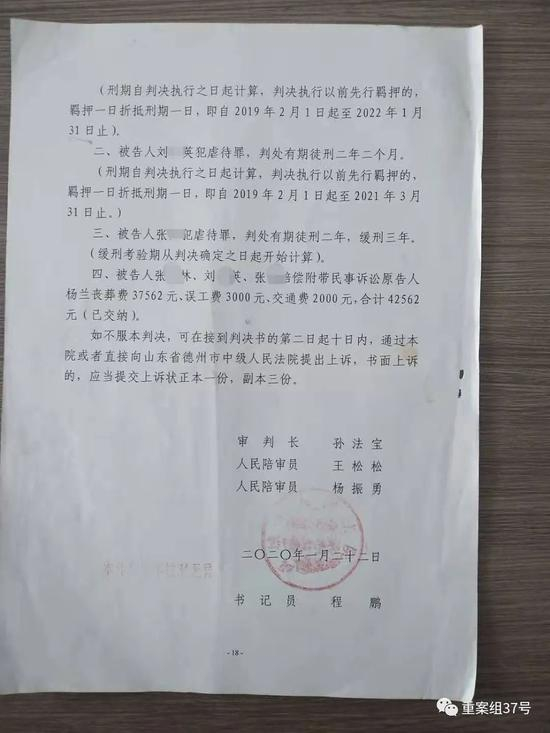 (刑期自判决执行之日起计算，判决执行以前先行羁押的，
羁押一日折抵刑期一日，即自 2019 年 2 月 1 日起至 2022 年 1 月
31 日止)。
二、被告人刘 英犯虐待罪，判处有期徒刑二年二个月。
(刑期自判决执行之日起计算，判决执行以前先行羁押的，
羁押一日折抵刑期一日，即自 2019 年 2 月 1 日起至 2021 年 3 月
31 日止。)
三、被告人张 犯虐待罪，判处有期徒刑二年，缓刑三年。
(缓刑考验期从判决确定之日起开始计算)。
四、被告人张 林、刘 英、张 赔偿附带民事诉讼原告人
杨兰丧葬费 37562 元、误工费 3000 元、交通费 2000 元，合计 42562
元（已交纳）。
如不服本判决，可在接到判决书的第二日起十日内，通过本
院或者直接向山东省德州市中级人民法院提出上诉，书面上诉
的，应当提交上诉状正本一份，副本三份。
审 判 长 孙 法 宝
人民陪审员 王 松 松
人民陪审员 杨 振 勇
二〇二〇年一月二十二日
书 记 员 程 鹏
- 18 -
重案组37号